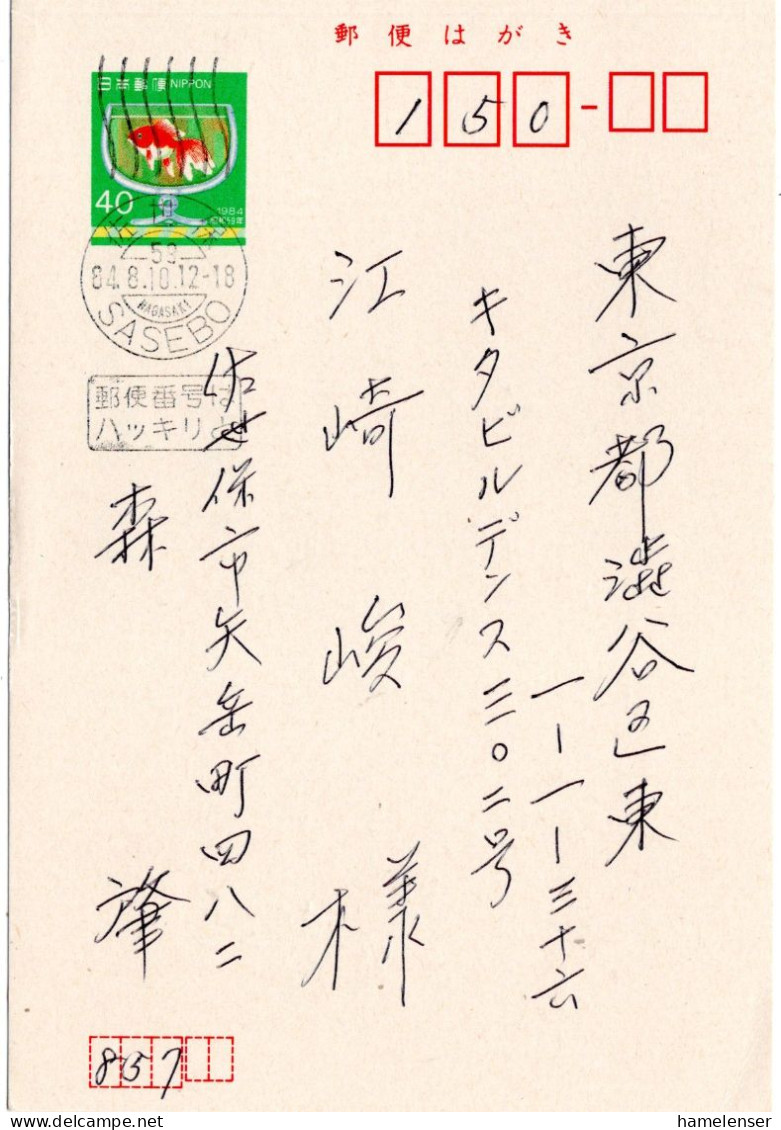 郵便はがき
日本郵便 NIPPON
40
1984
昭和59年
150
59
84.8.10.12-18
NAGASAKI
SASEBO
郵便番号は
ハッキリと
東京都澁谷区東
一-一-三十六
キタビルデンス三〇二号
江崎峻様
佐世保市矢岳町四八二
森肇
857
hamelenser